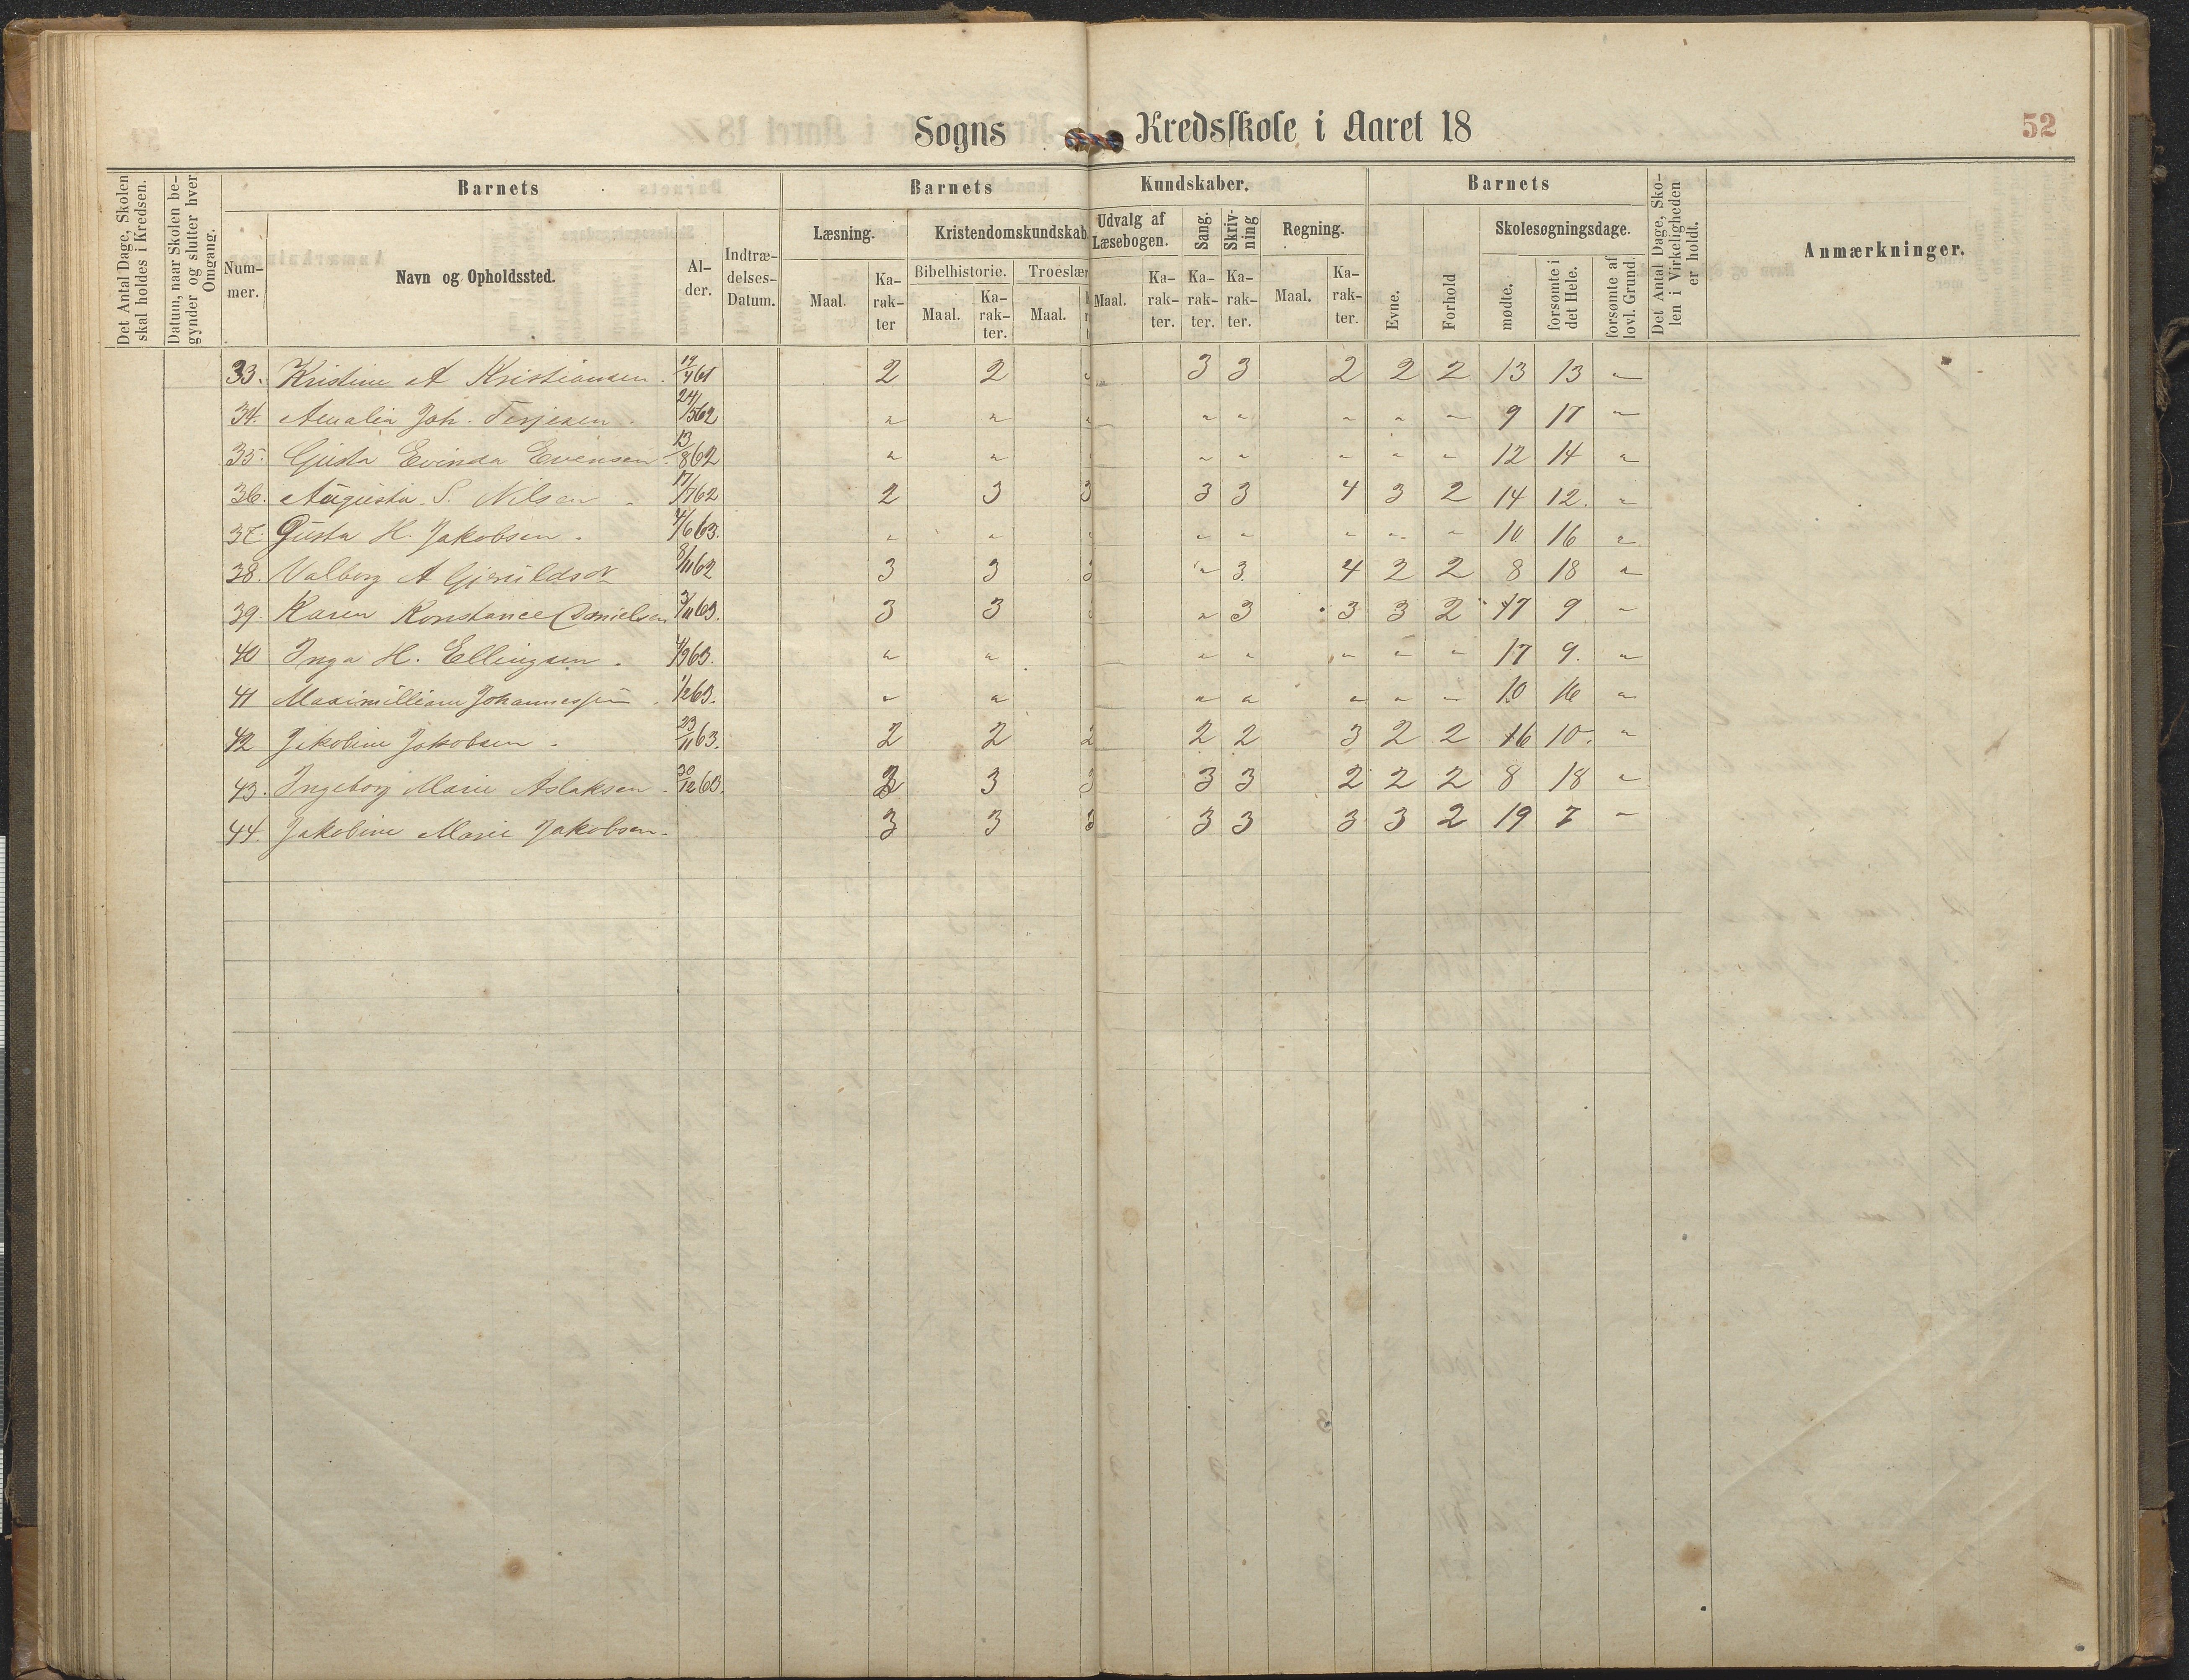 Sogns Kredsskole i Aaret 18
52
Det Antal Dage, Skolen skal holdes i Kredsen.
Datum, naar Skolen begynder og slutter hver Omgang.
Barnets
Barnets Kundskaber.
Barnets
Det Antal Dage, Skolen i Virkeligheden er holdt.
Anmærkninger.
Nummer.
Navn og Opholdssted.
Alder.
Indtrædelses-Datum.
Læsning.
Kristendomskundskab
Udvalg af Læsebogen.
Sang.
Skrivning
Regning.
Evne.
Forhold
Skolesøgningsdage.
Bibelhistorie.
Troeslær
Maal.
Karakter
Maal.
Karakter.
Maal.
Maal.
Karakter.
Karakter.
Karakter.
Maal.
Karakter.
mødte.
forsømte i det Hele.
forsømte af lovl. Grund.
33. Kristine A Kristiansen. 19/4 61 2 2 3 3 2 2 2 13 13 "
34. Amalia Joh. Terjesen. 24/5 62 " " " " " " " 9 17 "
35. Gusta Evinda Evensen. 13/8 62 " " " " " " " 12 14 "
36. Augusta S. Nilsen 17/7 62 2 3 3 3 3 4 3 2 14 12. "
37. Gusta H. Jakobsen. 4/6 63. " " " " " " " 10 16 "
38. Valborg A 8/11 62 3 3 3 " 3. 4 2 2 8 18 "
39. Karen Konstance Danielsen 3/11 63. 3 3 " 3 3 3 2 17 9 "
40 Inga H. Ellingsen. 4/9 63. " " " " " " " 17 9. "
41 1/2 63. " " " " " " " 10 16 "
42 Jakobine Jakobsen. 23/11 63. 2 2 2 2 2 3 2 2 16 10. "
43. Ingeborg Marie Aslaksen. 30/12 60. 3 3 3 3 3 2 2 2 8 18 "
44. Jakobine Marie Jakobsen. 3 3 3 3 3 3 3 2 19 7 "